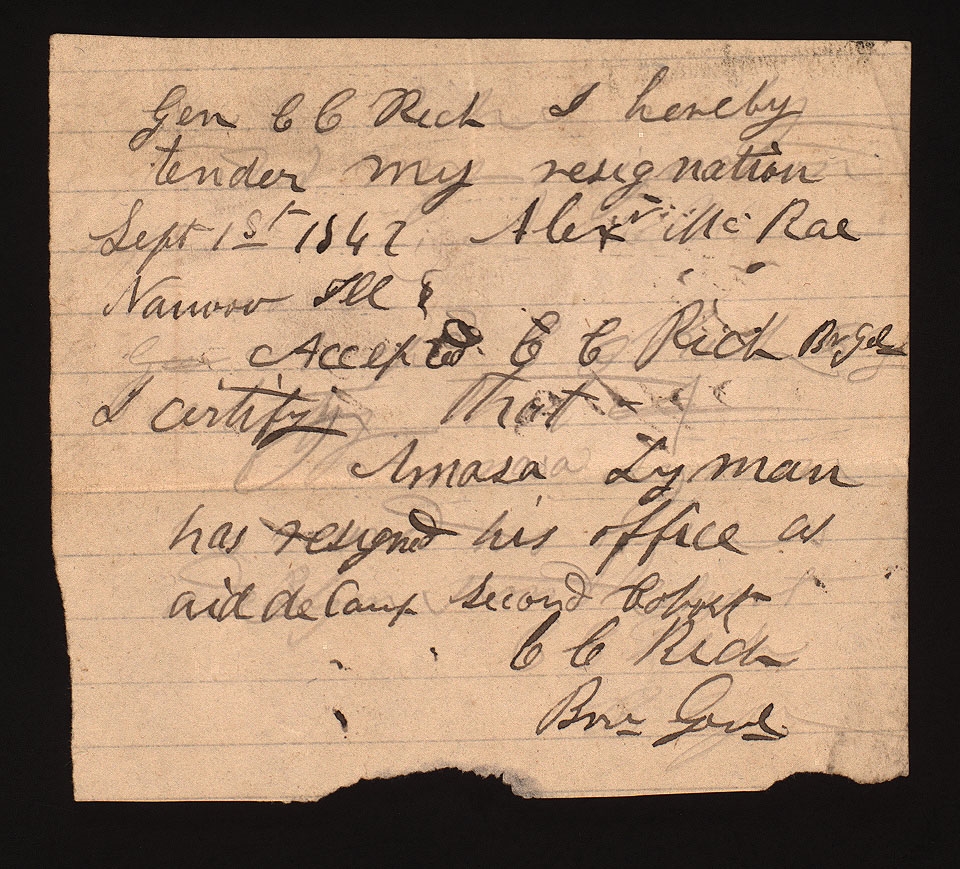 Gen C C Rich I hereby
tender my resignation
Sept 1st 1842 Alexr Mc Rae
Nauvoo Ill
Accepted C C Rich Br Genl
I certify that
Amasa Lyman
has resigned his office as
aid de Camp second Cohort
C C Rich
Brig Genl